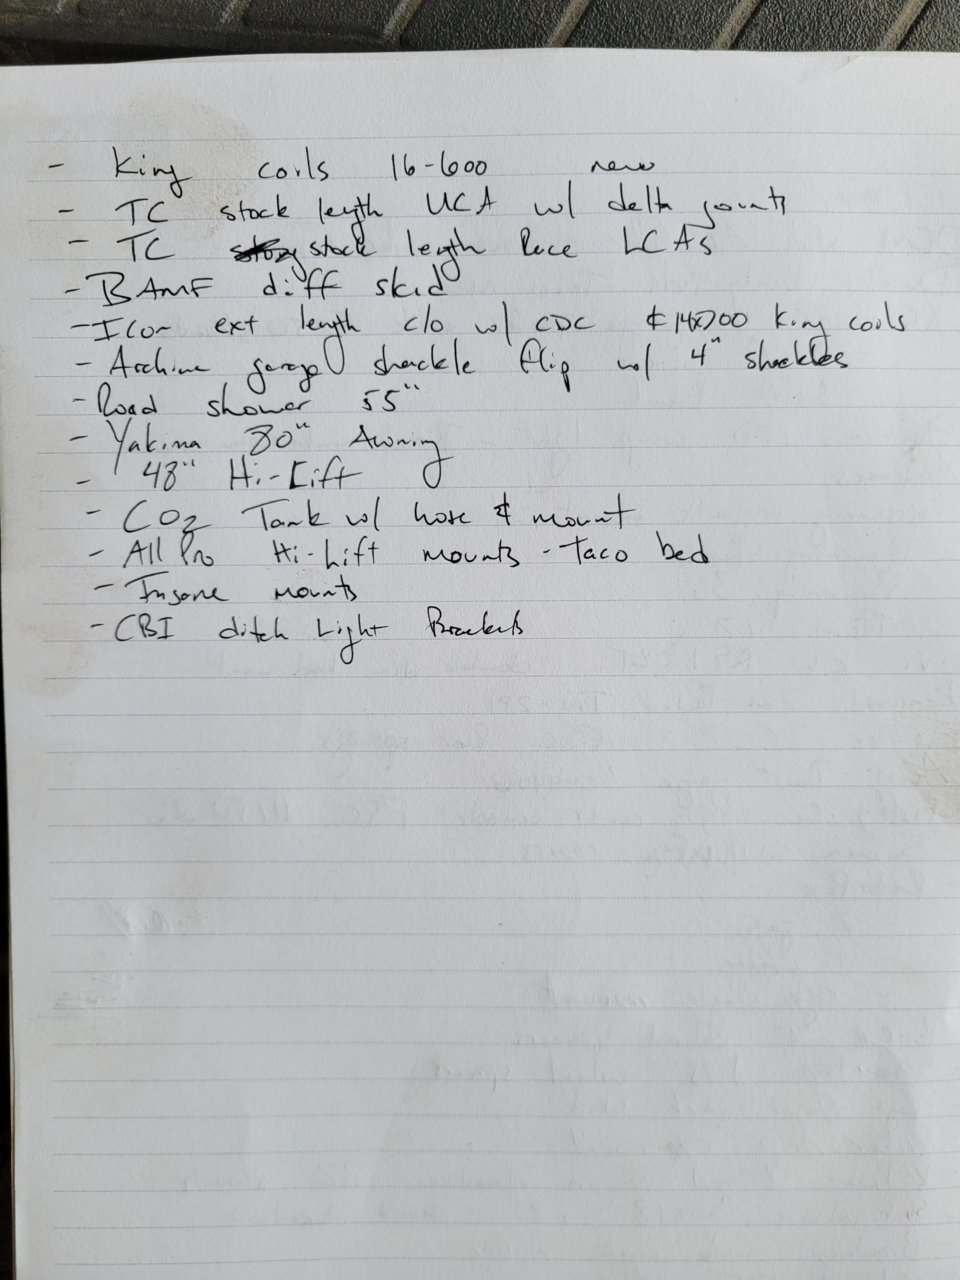 - King coils 16-600 new
- TC stock length UCA w/ delta joints
- TC stock length Race LCAs
- BAMF diff skid
- Icon ext length c/o w/ CDC & 14x700 King coils
- Archive garage shackle flip w/ 4" shackles
- Road shower 55"
- Yakima 80" Awning
- 48" Hi-Lift
- CO2 Tank w/ hose & mount
- All Pro Hi-Lift mounts - Taco bed
- Insane mounts
- CBI ditch Light Brackets